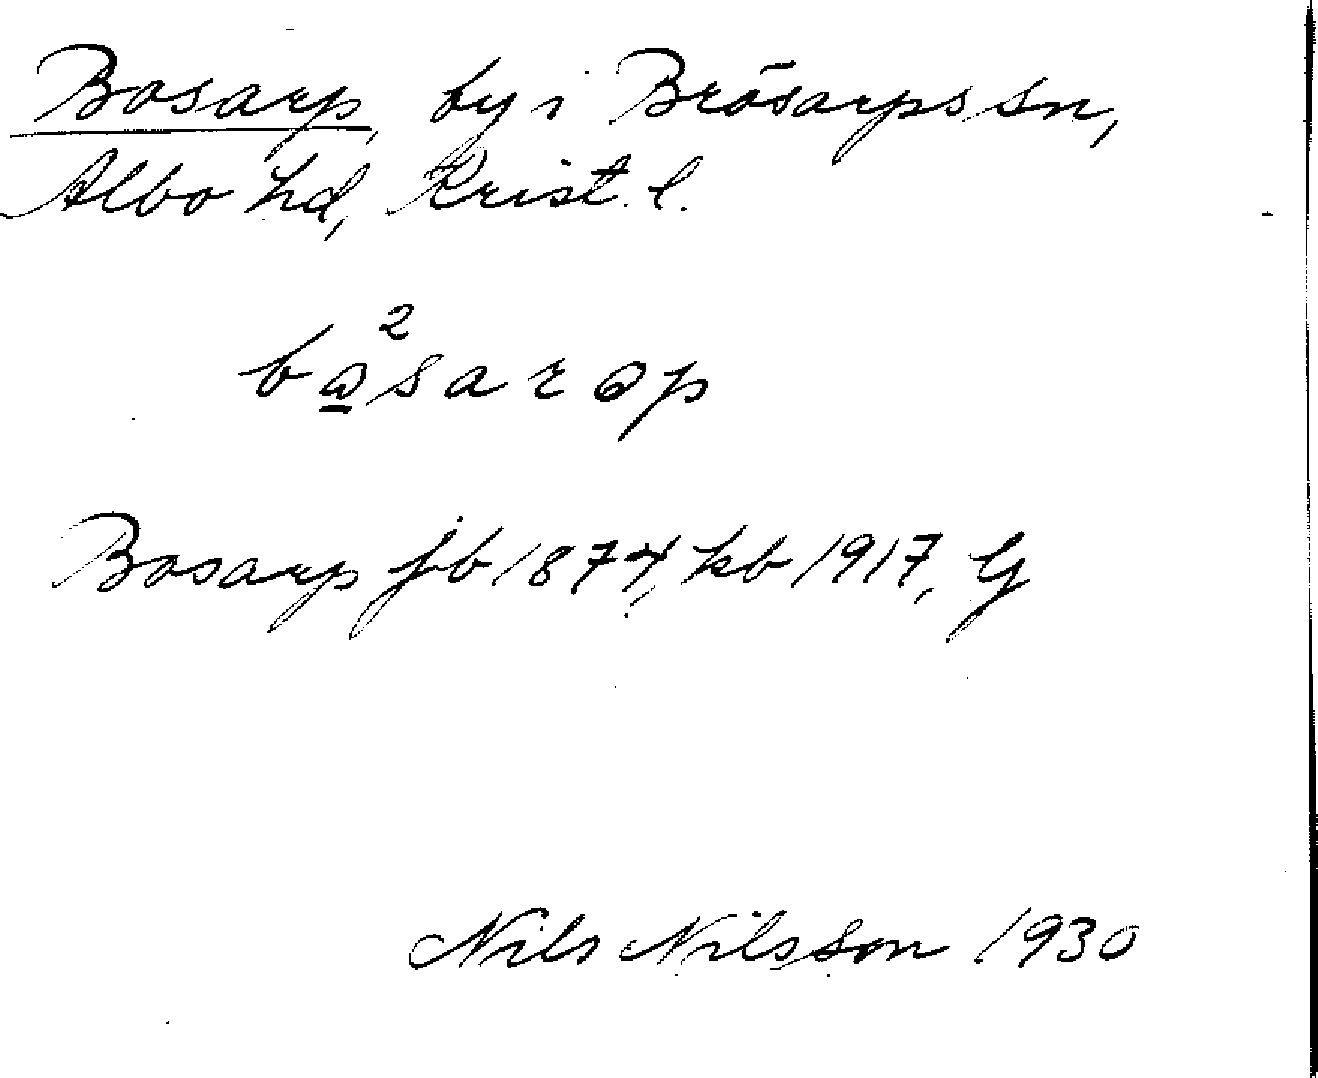 Bosarp, by i Brösarps sn,
Albo hd, Krist. l.
2
bo̲sarəp
Bosarp jb 1874, kb 1917, G
Nils Nilsson 1930